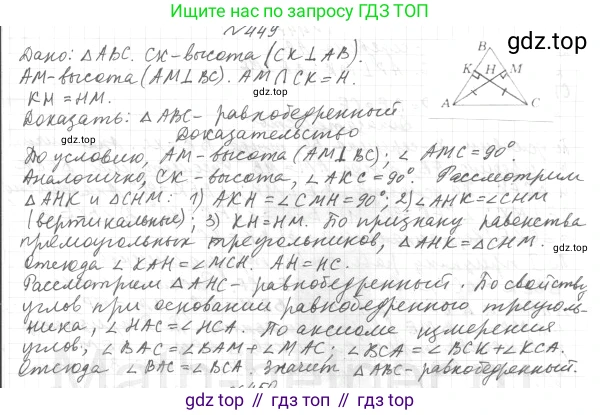 Ищите нас по запросу ГДЗ ТОП
№449
Дано: △ABC. CK-высота (CK⊥AB).
AM-высота (AM⊥BC). AM∩CK=H.
KH=HM.
Доказать: △ABC- равнобедренный
Доказательство
По условию, AM-высота (AM⊥BC); ∠AMC=90°.
Аналогично, CK-высота, ∠AKC=90°. Рассмотрим
△AHK и △CHM: 1) AKH=∠CMH=90°; 2) ∠AHK=∠CHM
(вертикальные); 3) KH=HM. По признаку равенства
прямоугольных треугольников, △AHK=△CHM.
Отсюда ∠KAH=∠MCH. AH=HC.
Рассмотрим △AHC- равнобедренный. По свойству
углов при основании равнобедренного треуголь-
ника, ∠HAC=∠HCA. По аксиоме измерения
углов, ∠BAC=∠BAM+∠MAC; ∠BCA=∠BCK+∠KCA.
Отсюда ∠BAC=∠BCA. Значит △ABC-равнобедренный.
B
K H M
A C
видео // гдз // подготовка // ответы // решения